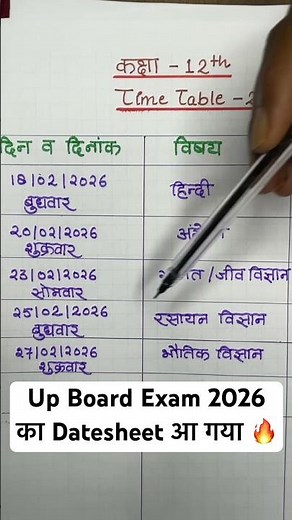 कक्षा - 12th
Time Table - 2
दिन व दिनांक विषय
18/02/2026 हिन्दी
बुधवार
20/02/2026
शुक्रवार
23/02/2026 /जीव विज्ञान
सोमवार
25/02/2026 रसायन विज्ञान
बुधवार
27/02/2026 भौतिक विज्ञान
शुक्रवार
Up Board Exam 2026
का Datesheet आ गया 🔥